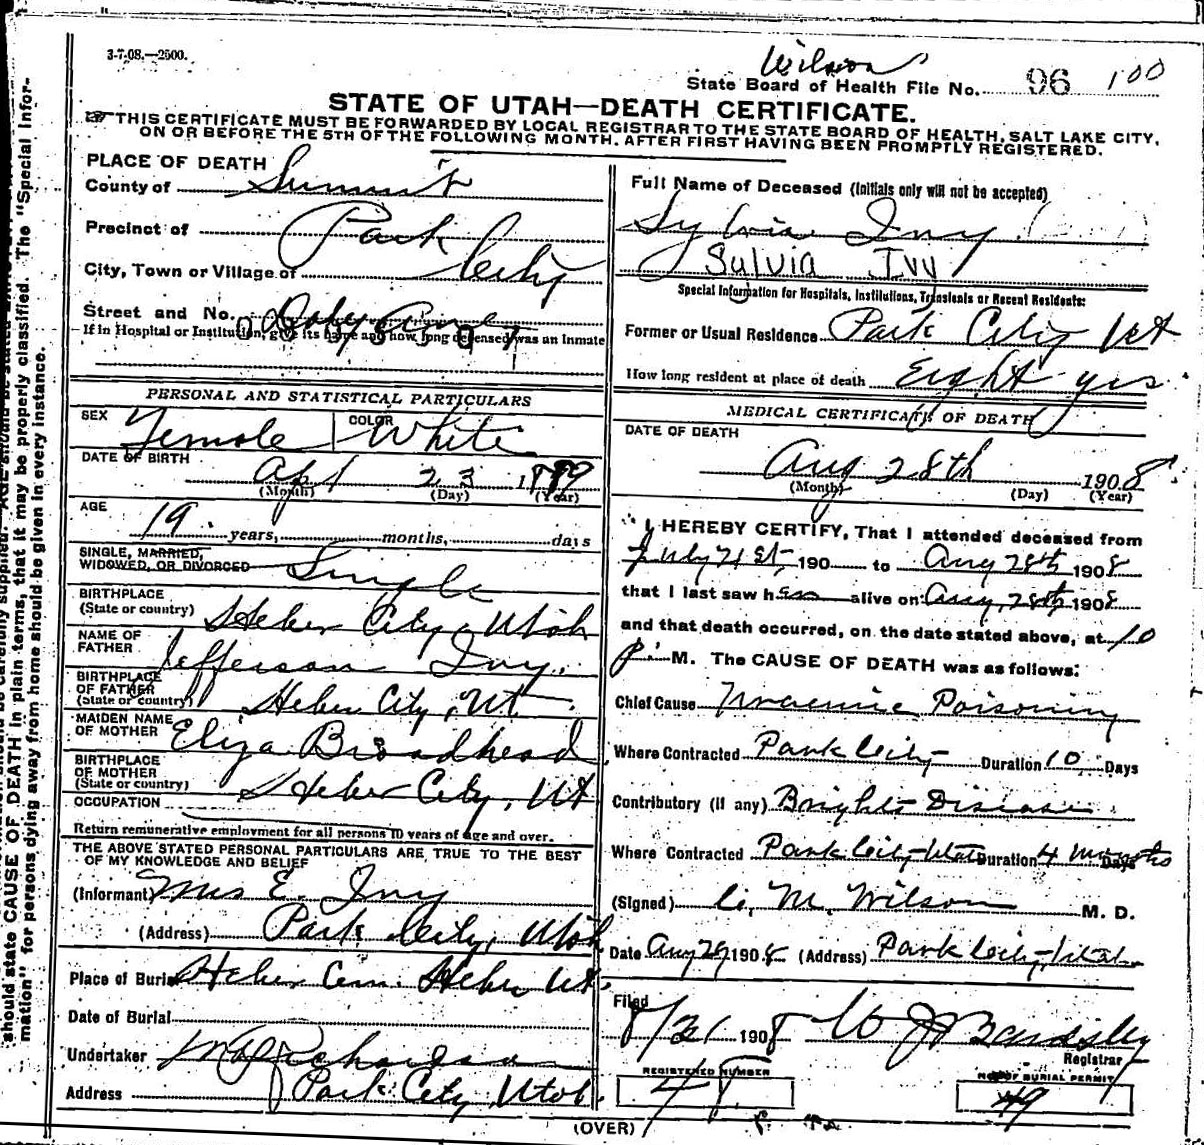 3-7-08.—2500.
Wilson
State Board of Health File No. 96 100
STATE OF UTAH—DEATH CERTIFICATE.
THIS CERTIFICATE MUST BE FORWARDED BY LOCAL REGISTRAR TO THE STATE BOARD OF HEALTH, SALT LAKE CITY,
ON OR BEFORE THE 5TH OF THE FOLLOWING MONTH, AFTER FIRST HAVING BEEN PROMPTLY REGISTERED.
PLACE OF DEATH
County of Summit
Precinct of Park
City, Town or Village of City
Street and No.
If in Hospital or Institution, give its name and how long deceased was an Inmate
PERSONAL AND STATISTICAL PARTICULARS
SEX Female COLOR White
DATE OF BIRTH Apl 23 1889
(Month) (Day) (Year)
AGE
19 years, months, days
SINGLE, MARRIED,
WIDOWED, OR DIVORCED Single
BIRTHPLACE
(State or country) Heber City, Utah
NAME OF
FATHER Jefferson Ivy.
BIRTHPLACE
OF FATHER
(State or country) Heber City, Ut
MAIDEN NAME
OF MOTHER Eliza Broadhead
BIRTHPLACE
OF MOTHER
(State or country) Heber City, Ut
OCCUPATION
Return remunerative employment for all persons 10 years of age and over.
THE ABOVE STATED PERSONAL PARTICULARS ARE TRUE TO THE BEST
OF MY KNOWLEDGE AND BELIEF
(Informant) Mrs E. Ivy
(Address) Park City, Utah
Place of Burial Heber Cem. Heber Ut.
Date of Burial
Undertaker Richardson
Address Park City Utah.
Full Name of Deceased (Initials only will not be accepted)
Sylvia Ivy
Sylvia Ivy
Special Information for Hospitals, Institutions, Transients or Recent Residents:
Former or Usual Residence Park City Ut
How long resident at place of death Eight yrs
MEDICAL CERTIFICATE OF DEATH
DATE OF DEATH
Aug 28th 1908
(Month) (Day) (Year)
I HEREBY CERTIFY, That I attended deceased from
July 21st, 190 to Aug 28th 1908
that I last saw her alive on Aug, 28th 1908
and that death occurred, on the date stated above, at 10
P. M. The CAUSE OF DEATH was as follows:
Chief Cause Uraemic Poisoning
Where Contracted Park City Duration 10 Days
Contributory (if any) Brights Disease
Where Contracted Park City Utah Duration 4 Months Days
(Signed) C. M. Wilson M. D.
Date Aug 29 1908 (Address) Park City, Utah
Filed
8/31 1908 W J Bardsley
Registrar
REGISTERED NUMBER
48
NO. OF BURIAL PERMIT
49
(OVER)
should state CAUSE OF DEATH in plain terms, that it may be properly classified. The "Special Infor-
mation" for persons dying away from home should be given in every instance.